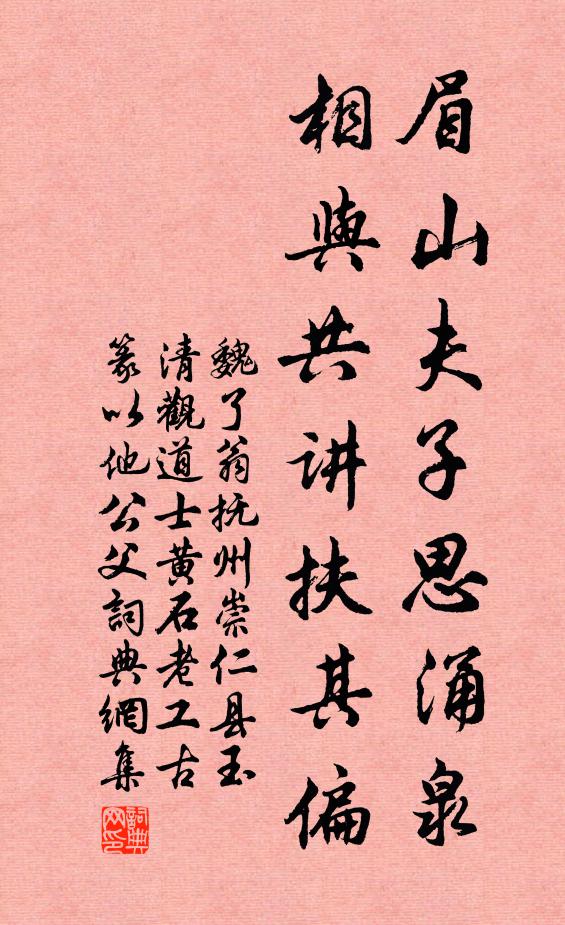 眉山夫子思涌泉
相與共讲扶其偏
魏了翁抚州崇仁县玉
清觀道士黄石老工古
篆以他公父詞典網集
詞典网印